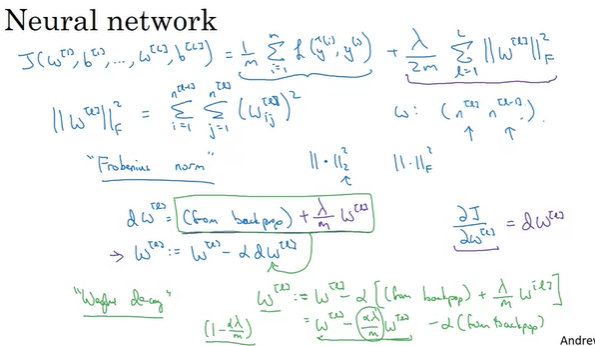 Neural network
J(w^[1], b^[1], ..., w^[L], b^[L]) = 1/m Σ_{i=1}^{m} L(ŷ^(i), y^(i)) + λ/2m Σ_{l=1}^{L} ||w^[l]||_F^2
||w^[l]||_F^2 = Σ_{i=1}^{n^[l-1]} Σ_{j=1}^{n^[l]} (w_ij^[l])^2    w: (n^[l] n^[l-1]).
"Frobenius norm"    ||·||_2^2    ||·||_F^2
dw^[l] = (from backprop) + λ/m w^[l]    ∂J/∂w^[l] = dw^[l]
→ w^[l] := w^[l] - α dw^[l]
"Weight decay"    w^[l] := w^[l] - α [(from backprop) + λ/m w^[l]]
(1 - αλ/m)    = w^[l] - αλ/m w^[l] - α (from backprop)
Andrew